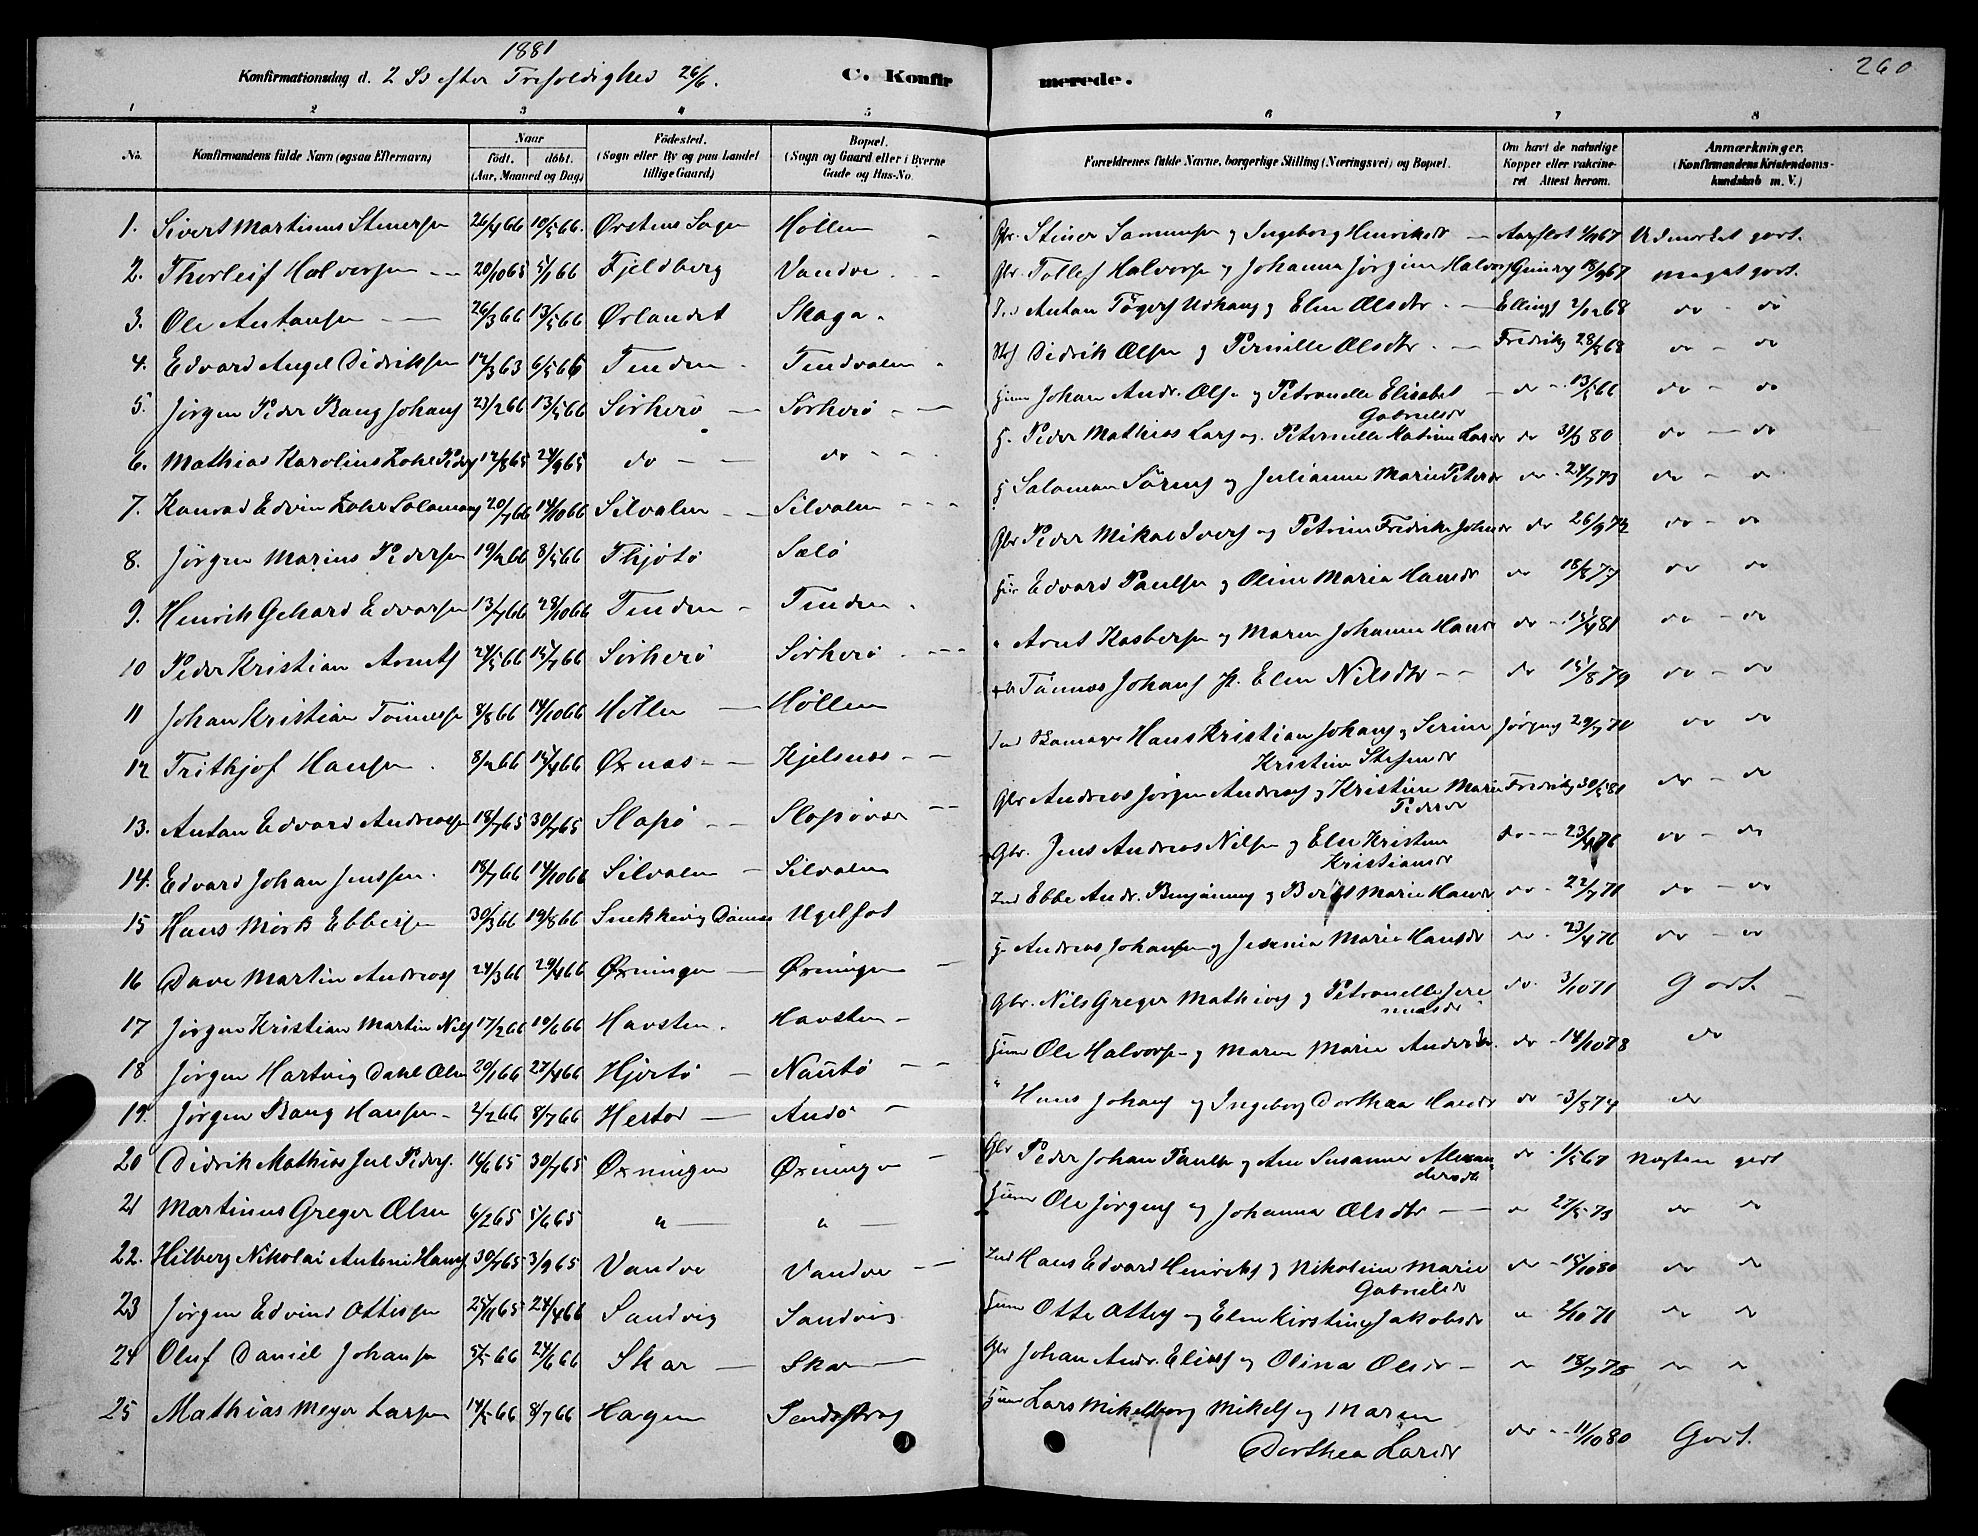 1881
260
Konfirmationsdag d. 2 S efter Trefoldighed 26/6.
C. Konfirmerede.
1 2 3 4 5 6 7 8
No. Konfirmandens fulde Navn (ogsaa Efternavn) Naar födt. döbt. (Aar, Maaned og Dag) Födested. (Sogn eller By og paa Landet tillige Gaard) Bopæl. (Sogn og Gaard eller i Byerne Gade og Hus-No. Forældrenes fulde Navne, borgerlige Stilling (Næringsvei) og Bopæl. Om havt de naturlige Kopper eller vakcineret Attest herom. Anmærkninger. (Konfirmandens Kristendomskundskab m. V.)
1. Sivert Martinus Stenersen 26/4 66 10/5 66. Ørstens Sogn Høllen Gbr. Stener Samuelsen og Ingeborg Henriksdr Aarflot 1/11 67 Udmerket godt.
2. Thorleif Halvorsen 20/10 65 5/1 66 Fjeldberg Vandve Gbr. Tollef Halvorsen og Johanna Jørgine Halvors 18/9 67 Meget godt.
3. Ole Antonsen 26/3 66 13/5 66 Ørlandet Skaga Anton Tøgers Udhaug og Elen Olsdtr Ellings 2/12 68 do - do
4. Edvard Angel Didriksen 12/3 63 6/5 66 Tenden Tendvalen Didrik Olsen og Pernille Olsdtr Fredriks 28/8 68 do - do
5. Jørgen Peder Bang Johans 23/2 66 13/5 66 Sørherø Sørherø Huum Johan Andr. Olsen og Petronelle Elisabet Gabrielsdr do 13/5 66 do - do
6. Mathias Karolius Zahl Peders 12/8 65 24/9 65 do do H. Peder Mathias Lars og Peternelle Katrine Larsdr do 31/3 80 do - do
7. Konrad Edvin Zahl Salomons 20/7 66 14/10 66 Silvalen Silvalen H Salomon Sørens og Julianna Marie Petersdr do 24/7 73 do - do
8. Jørgen Marius Pedersen 19/2 66 8/5 66 Thjøtø Sælø Gbr Peder Mikal Ivers og Petrine Fredrikke Johnsdr do 26/9 72 do - do
9. Henrik Gehard Edvarsen 13/7 66 28/10 66 Tenden Tenden Edvard Paulsen og Oline Maria Hansdr do 18/8 77 do do
10 Peder Kristian Arnts 24/5 66 15/7 66 Sørherø Sørherø " Arnt Kasbersen og Maren Johanna Hansdr do 15/4 81 do - do
11 Johan Kristian Tønnesen 8/8 66 14/10 66 Høllen Høllen Tønnes Johans og Elen Nilsdtr do 15/8 79 do - do
12 Frithjof Hansen 8/2 66 15/4 66 Øxnæs Kjelsnes Hans Kristian Johans og Serine Kristine Stefensdr Jørgens 29/7 70 do do
13. Antan Edvard Andreassen 18/7 65 30/7 65 Slapø Slapøvær Gbr Andreas Jørgen Andreass og Kristine Marie Pedersdr Fredriks 30/5 81 do - do
14. Edvard Johan Jenssen. 18/7 66 14/10 66 Silvalen Silvalen Gbr. Jens Andreas Nilsen og Elen Kristine Kristiansdr do 23/4 76 do - do
15 Hans Mørk Ebbesen 30/3 66 19/8 66 Snekkevig Dønnes Ugelfot Ind Ebbe Andr. Benjamins og Berit Marie Hansdr do 22/7 71 do - do
16 Dave Martin Andreass 24/3 66 29/4 66 Øxningen Øxningen H. Andreas Johansen og Jesenia Marie Hansdr do 23/4 76 do - do
17 Jørgen Kristian Martin Nils 17/2 66 10/6 66 Havsten Havsten Gbr. Nils Greger Mathias og Petronelle Jeremiasdr do. 3/10 71 Godt.
18 Jørgen Hartvig Dahl Olsen 20/1 66 27/4 66 Hjortø Nautø Huum Ole Halvorsen og Maren Marie Andersdr. do 14/10 78 do
19. Jørgen Bang Hansen 2/2 66 8/7 66 Hestad Andø " Hans Johans og Ingeborg Dorthea Hansdr do 3/8 74 do
20 Didrik Mathias Juul Peders. 14/6 65 30/7 65 Øxningen Øxningen Gbr Peder Johan Paulsen og Ane Susanna Alexandersdtr do 1/5 67 Næsten godt
21 Martinus Greger Olsen 6/2 65 5/6 65 " " Huum Ole Jørgens og Johanna Olsdtr 27/5 73 do do
22. Hilberg Nikolai Antoni Hans 30/7 65 3/9 65 Vandve Vandve Ind Hans Edvard Henriks og Nikoline Marie Gabrielsdr do 15/10 80 do do
23 Jørgen Edvind Ottesen 25/11 65 24/4 66 Sandvig Sandvig Huum Otte Ottes og Elen Kirstine Jakobsdr " 2/10 71 do do
24 Oluf Daniel Johansen 5/5 66 24/6 66 Skar Skar Gbr Johan Andr. Elias og Olina Olsdr 18/7 75 do do
25 Mathias Meyer Larsen 14/5 66 8/7 66 Hagen Huum Lars Mikelborg Mikels og Maren Dorthea Larsdr do 11/10 80 Godt.